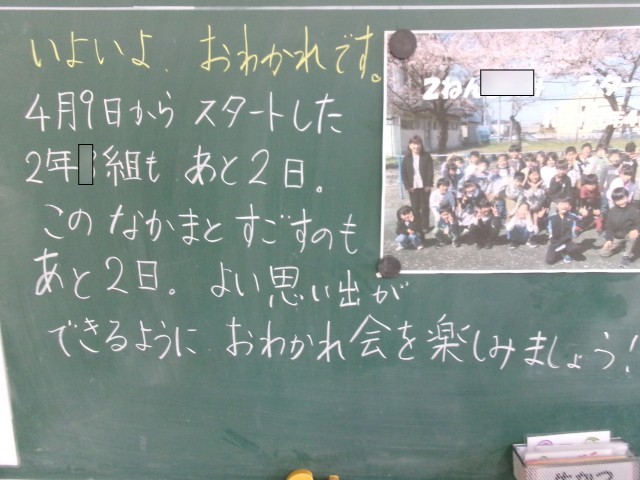 いよいよ、おわかれです。
4月9日から スタートした
2年 組も あと2日。
この なかまと すごすのも
あと2日。よい思い出が
できるように おわかれ会を楽しみましょう!
2ねん スター